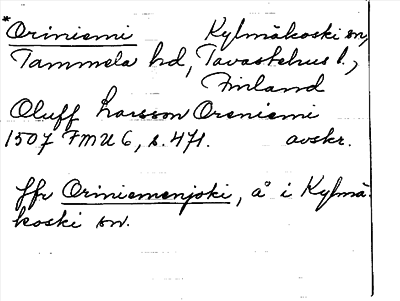 *Oriniemi Kylmäkoski sn,
Tammela hd, Tavastehus l.,
Finland
Oluff Larsson Oreniemi
1507 FMU 6, s. 471. avskr.
Jfr Oriniemenjoki, å i Kylmä-
koski sn.